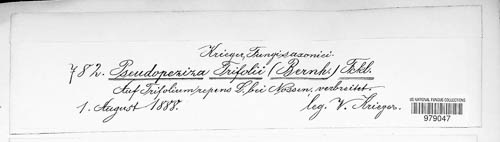 Krieger, Fungi saxonici.
782. Pseudopeziza Trifolii (Bernh.) Fckl.
Auf Trifolium repens L. bei Nossen, verbreitet.
1. August 1888. leg. W. Krieger.
US NATIONAL FUNGUS COLLECTIONS
979047